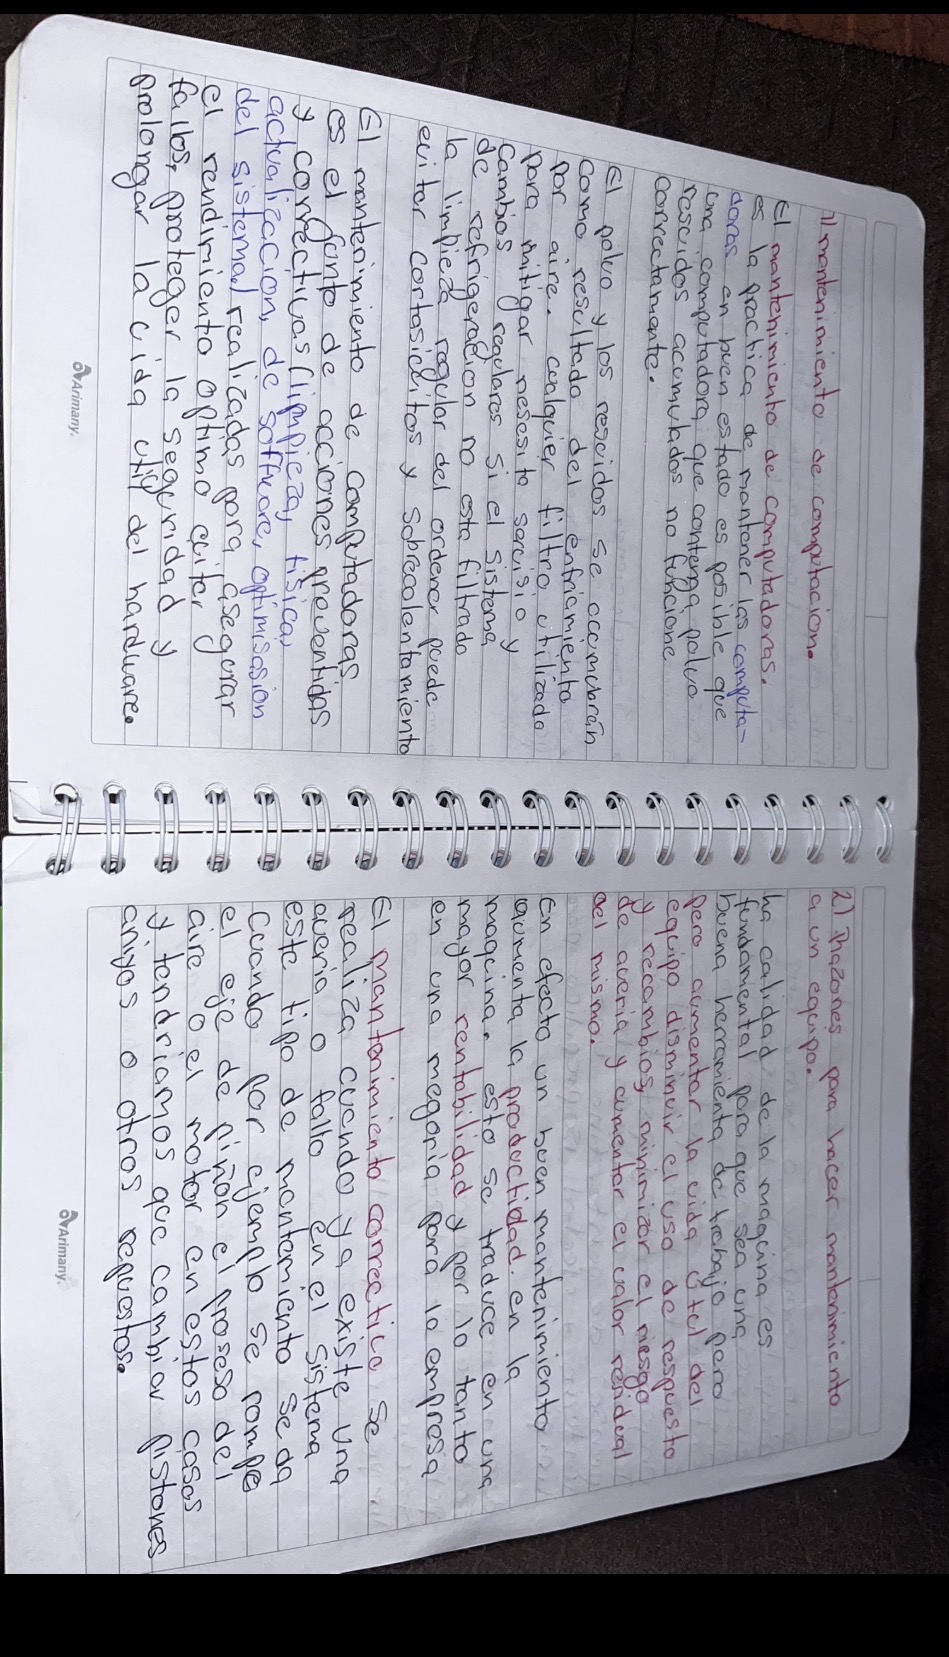 1) mantenimiento de computacion.
El mantenimiento de computadoras.
es la practica de mantener las computa-
doras en buen estado es posible que
una computadora que contenga polvo
resuidos acumulados no funcione
correctamente.
El polvo y los rescidos se acumubrán
como resultado del enfriamiento
por aire. cualquier filtro utilizado
para mitigar nesesita servisio y
cambios regulares si el sistema
de refrigeracion no esta filtrado
la limpieza regular del ordener puede
evitar cortosicuitos y sobrecalentamiento
El mantenimiento de computadoras
es el junto de acciones preventidas
y correctivas (limpieza, fisica,
actualizacion, de software, optimisasion
del sistema) realizadas para asegurar
el rendimiento optimo evitar
fallos, proteger la seguridad y
prolongar la vida util del hardware.
Arimany.
2) Rhazones para hacer mantenimiento
a un equipo.
ha calidad de la maqcina es
fundamental para que sea una
buena herramienta de trabajo pero
pero aumentar la vida útel del
equipo disminuir el uso de respuesto
y recambios, minimizar el riesgo
de averia y aumentar el valor residual
del mismo.
En efecto un buen mantenimiento
aumenta la productidad. en la
maquina. esto se traduce en una
mayor rentabilidad y por lo tanto
en una megoria para la empresa
El mantenimiento correctico se
realiza cuendo ya existe una
averia o fallo en el sistema
este tipo de mantemiento se da
Cuando por ejemplo se rompe
el eje de piñon el proseso del
aire o el motor en estos casos
y tendriamos que cambiar pistones
aniyos o otros repuestos.
Arimany.